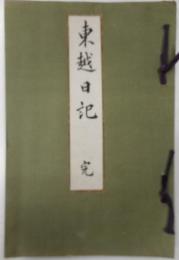 東越日記 完